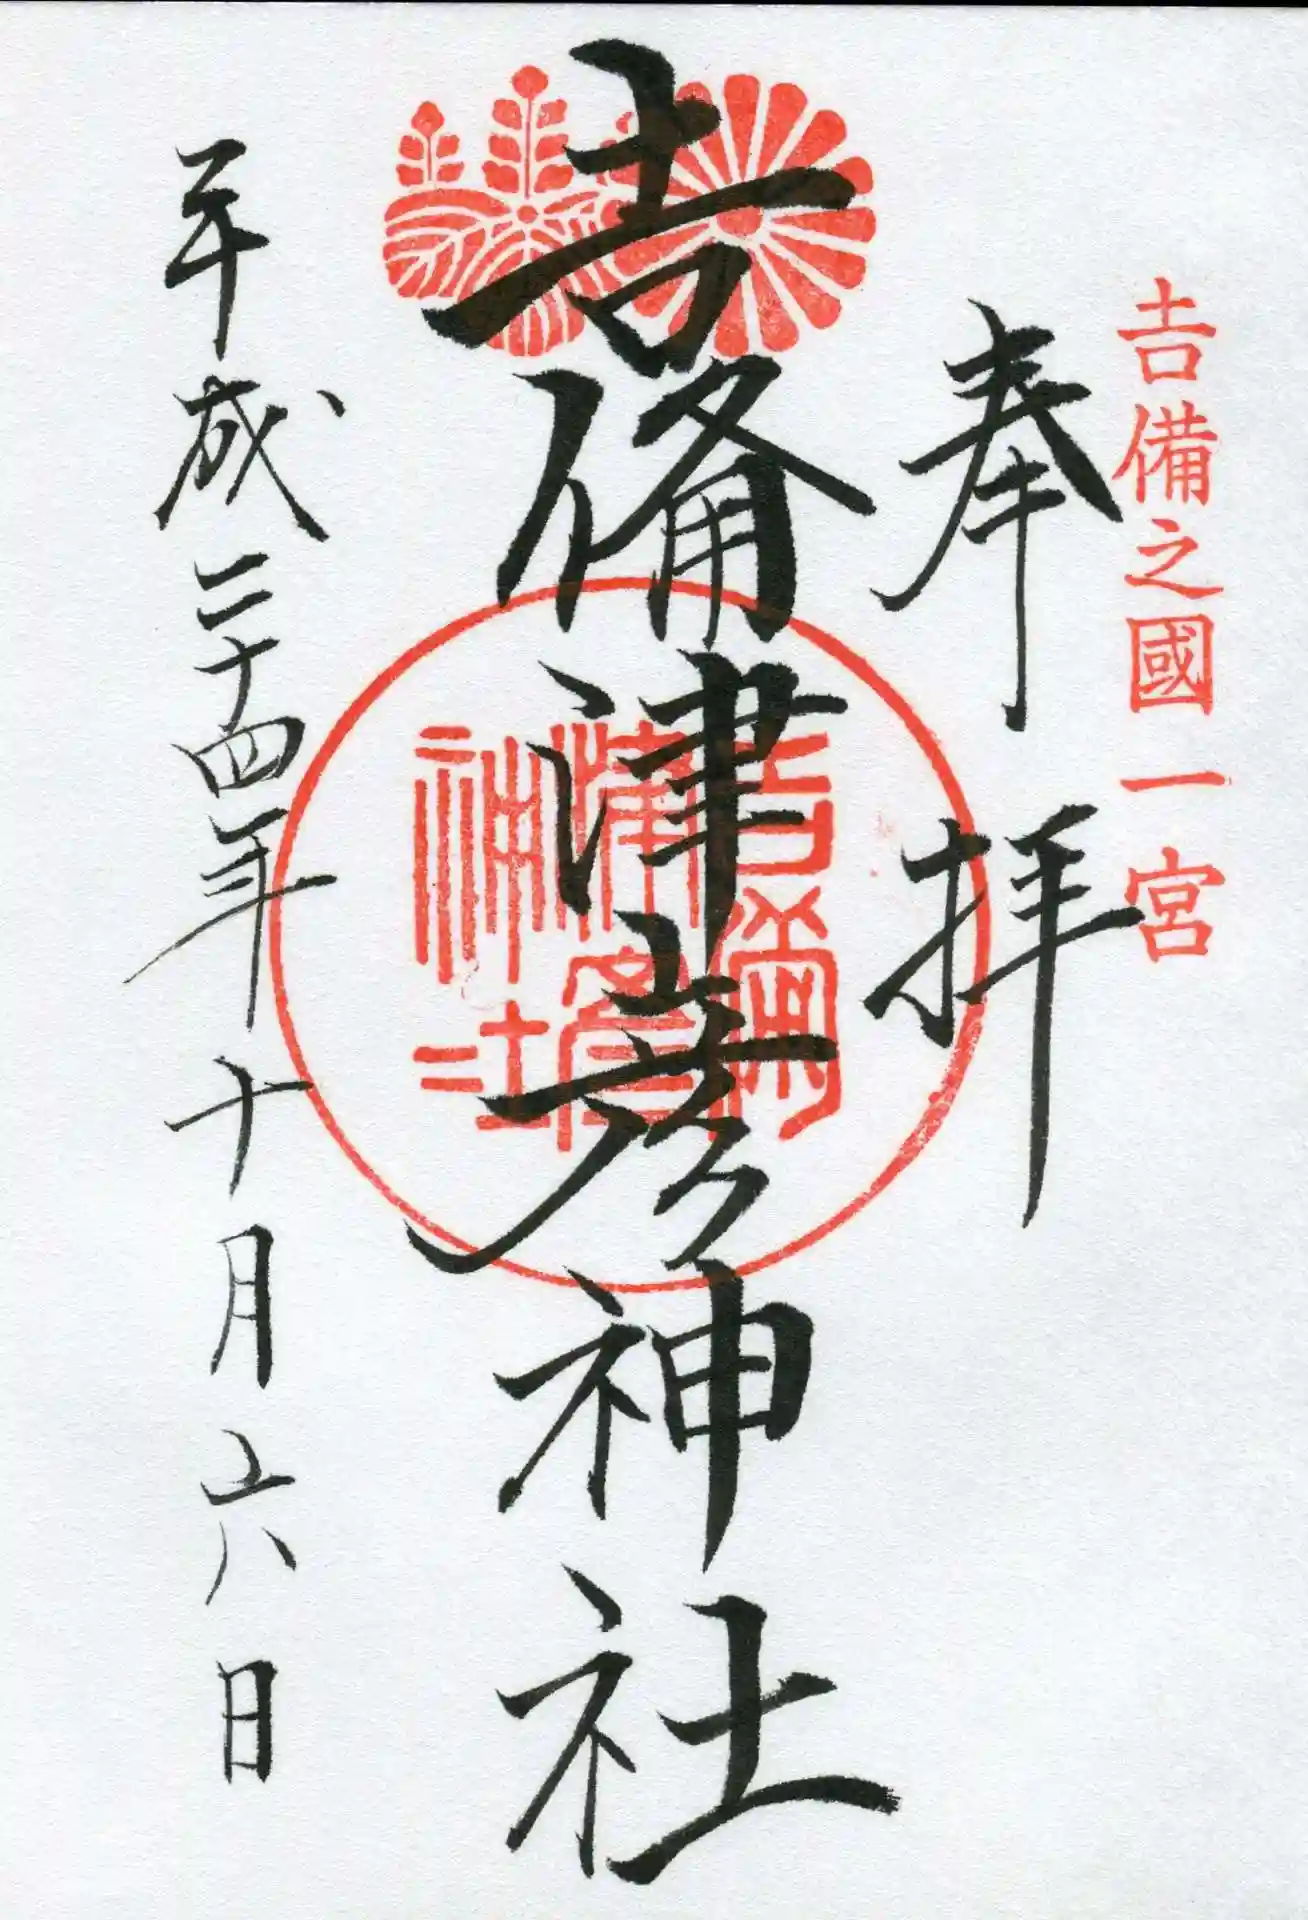 𠮷備之國一宮
奉拝
𠮷備津彦神社
吉備
津彦
神社
平成二十四年十月六日